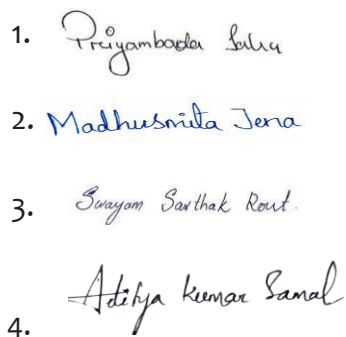 1. Priyambada Saha
2. Madhusmita Jena
3. Swayam Sarthak Rout.
4. Aditya Kumar Samal